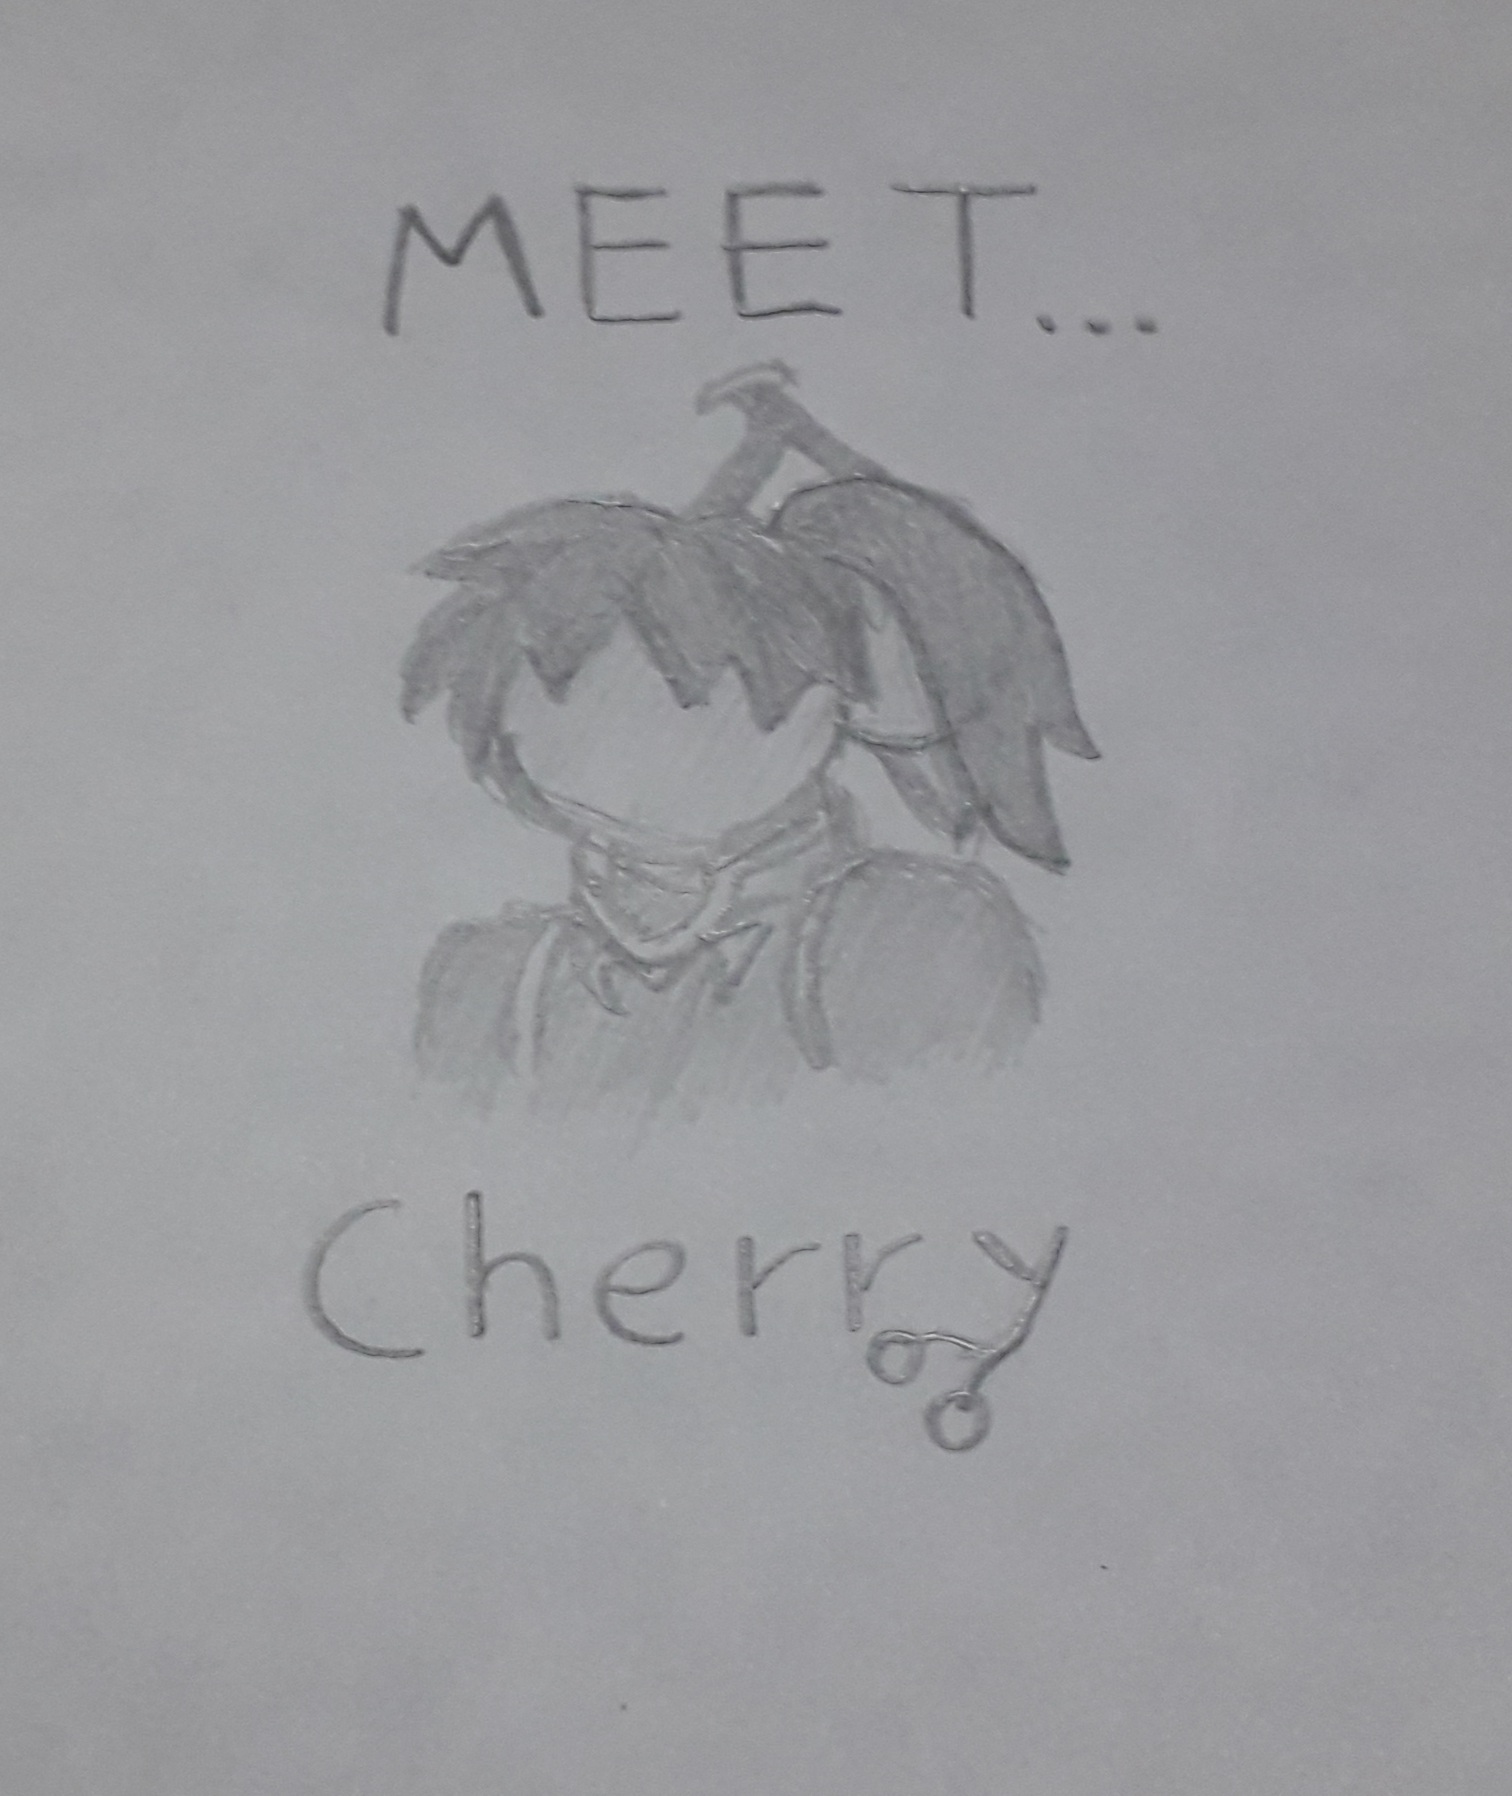 MEET...
Cherry